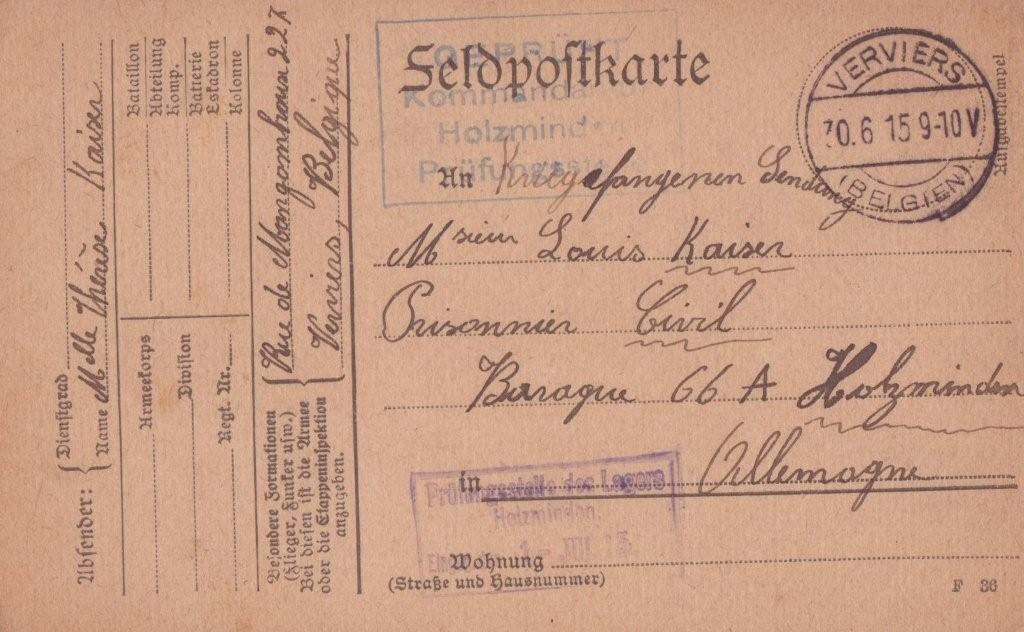 Feldpostkarte
GEPRÜFT
Kommandantur
Holzminden
Prüfungsstelle
VERVIERS
30.6 15 9-10 V
(BELGIEN)
Aufgabestempel
An Kriegsgefangenen Sendung
Msieur Louis Kaiser
Prisonnier Civil
Baraque 66 A Holzminden
in (Allemagne
Prüfungsstelle des Lagers
Holzminden.
1 - JUL 15.
Wohnung
(Straße und Hausnummer)
F 36
Absender:
Dienstgrad
Name Melle Thérèse Kaiser
Bataillon
Abteilung
Komp.
Batterie
Eskadron
Kolonne
Armeekorps
Division
Regt. Nr.
Besondere Formationen
(Flieger, Funker usw.)
Bei diesen ist die Armee
oder die Etappeninspektion
anzugeben.
Rue de 227
Verviers, Belgique